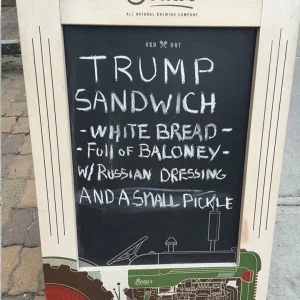 ALL NATURAL BREWING COMPANY
VON ONT
TRUMP
SANDWICH
- WHITE BREAD -
- FULL OF BALONEY -
W/ RUSSIAN DRESSING
AND A SMALL PICKLE
Beau's